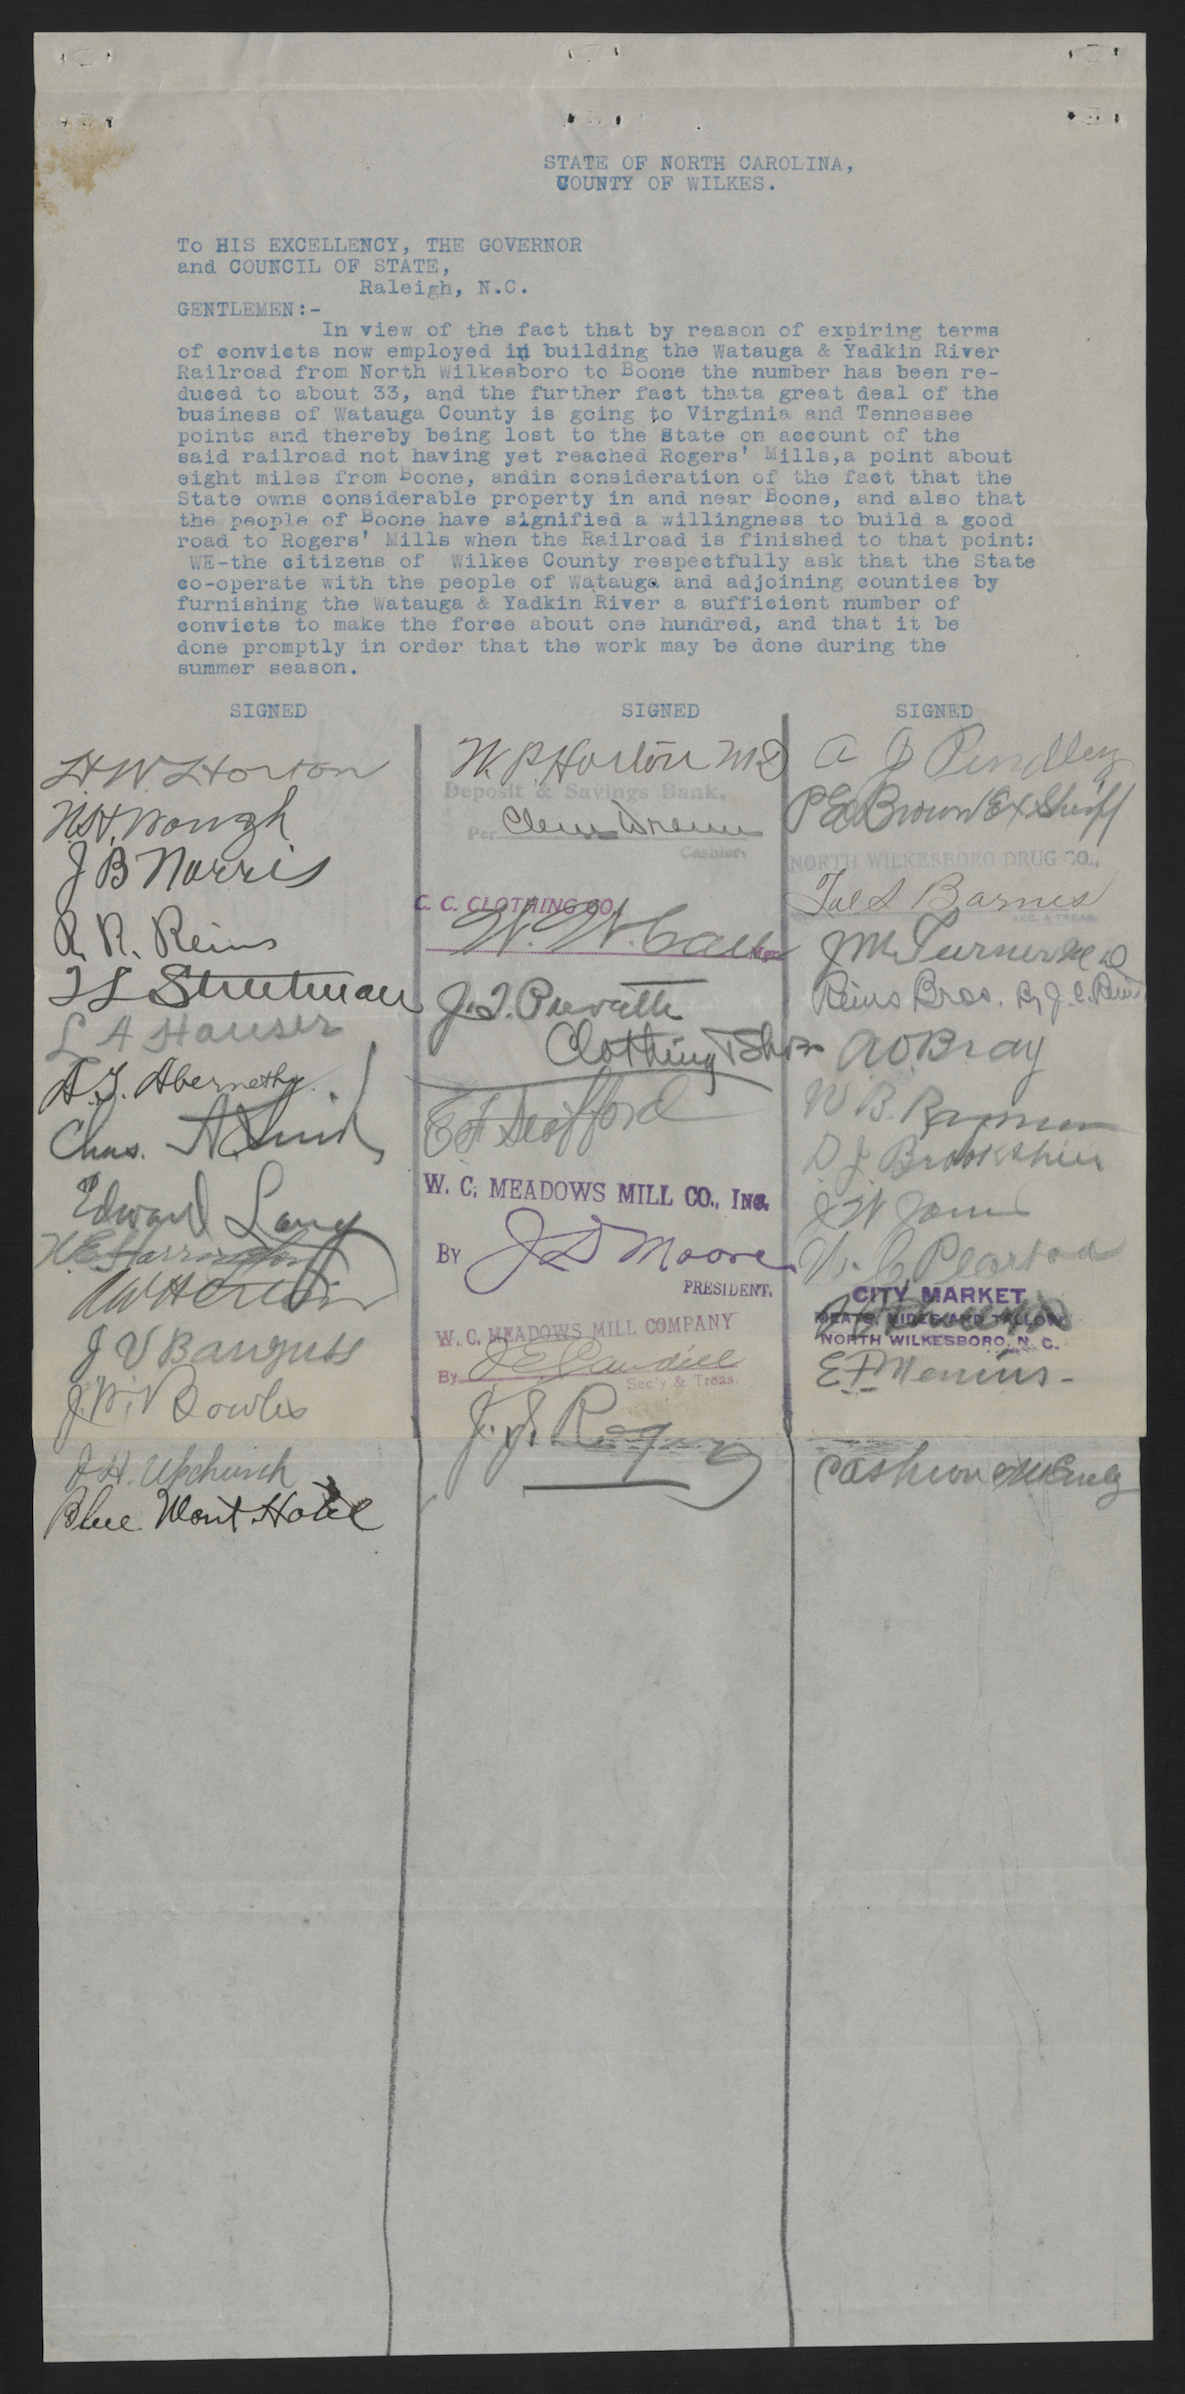 STATE OF NORTH CAROLINA,
COUNTY OF WILKES.
To HIS EXCELLENCY, THE GOVERNOR
and COUNCIL OF STATE,
Raleigh, N.C.
GENTLEMEN:-
In view of the fact that by reason of expiring terms
of convicts now employed in building the Watauga & Yadkin River
Railroad from North Wilkesboro to Boone the number has been re-
duced to about 33, and the further fact thata great deal of the
business of Watauga County is going to Virginia and Tennessee
points and thereby being lost to the State on account of the
said railroad not having yet reached Rogers' Mills,a point about
eight miles from Boone, andin consideration of the fact that the
State owns considerable property in and near Boone, and also that
the people of Boone have signified a willingness to build a good
road to Rogers' Mills when the Railroad is finished to that point:
WE-the citizens of Wilkes County respectfully ask that the State
co-operate with the people of Watauga and adjoining counties by
furnishing the Watauga & Yadkin River a sufficient number of
convicts to make the force about one hundred, and that it be
done promptly in order that the work may be done during the
summer season.
SIGNED
H.W. Horton
J B Norris
R. N. Reins
L A Hauser
A.G. Abernethy
Chas.
Edward
W.E. Harrington
J V Bauguss
J.W. Bowles
J.H. Upchurch
Blue Mont Hotel
SIGNED
W. P. Horton M D
Deposit & Savings Bank,
Per
Cashier.
C. C. CLOTHING CO.
W. W.
J. T. Prevatte
Clothing
W. C. MEADOWS MILL CO., Inc.
By J D Moore
PRESIDENT.
W. C. MEADOWS MILL COMPANY
By J E Caudill
Sec'y & Treas.
SIGNED
A J Pendley
P E Brown Ex Sheriff
NORTH WILKESBORO DRUG CO.,
Barnes
SEC. & TREAS.
J M Turner M D
Reins Bros. By J. C. Reins
A O Bray
W B.
D. J. Brookshire
J W
W. C.
CITY MARKET
MEATS, HIDES AND TALLOW
NORTH WILKESBORO, N. C.
Cashion